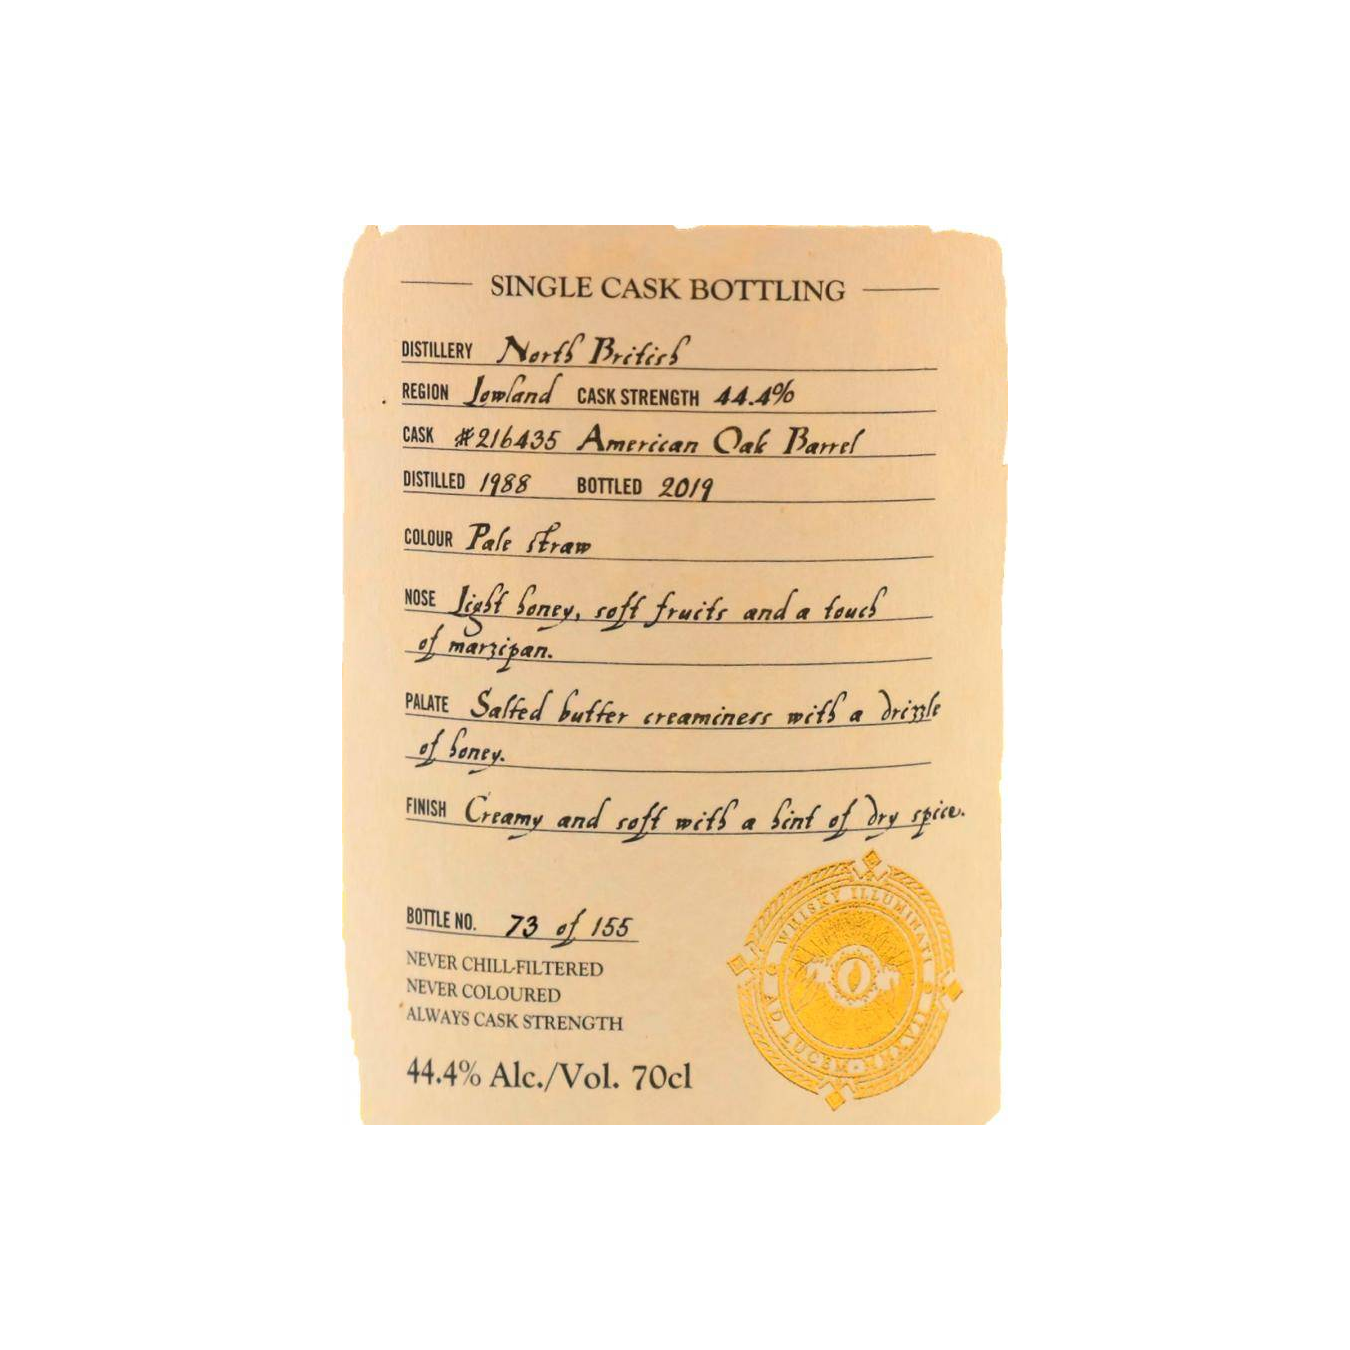 SINGLE CASK BOTTLING
DISTILLERY North British
REGION Lowland CASK STRENGTH 44.4%
CASK #216435 American Oak Barrel
DISTILLED 1988 BOTTLED 2019
COLOUR Pale straw
NOSE Light honey, soft fruits and a touch
of marzipan.
PALATE Salted butter creaminess with a drizzle
of honey.
FINISH Creamy and soft with a hint of dry spice.
BOTTLE NO. 73 of 155
NEVER CHILL-FILTERED
NEVER COLOURED
ALWAYS CASK STRENGTH
44.4% Alc./Vol. 70cl
WHISKY ILLUMINATI
AD LUCEM